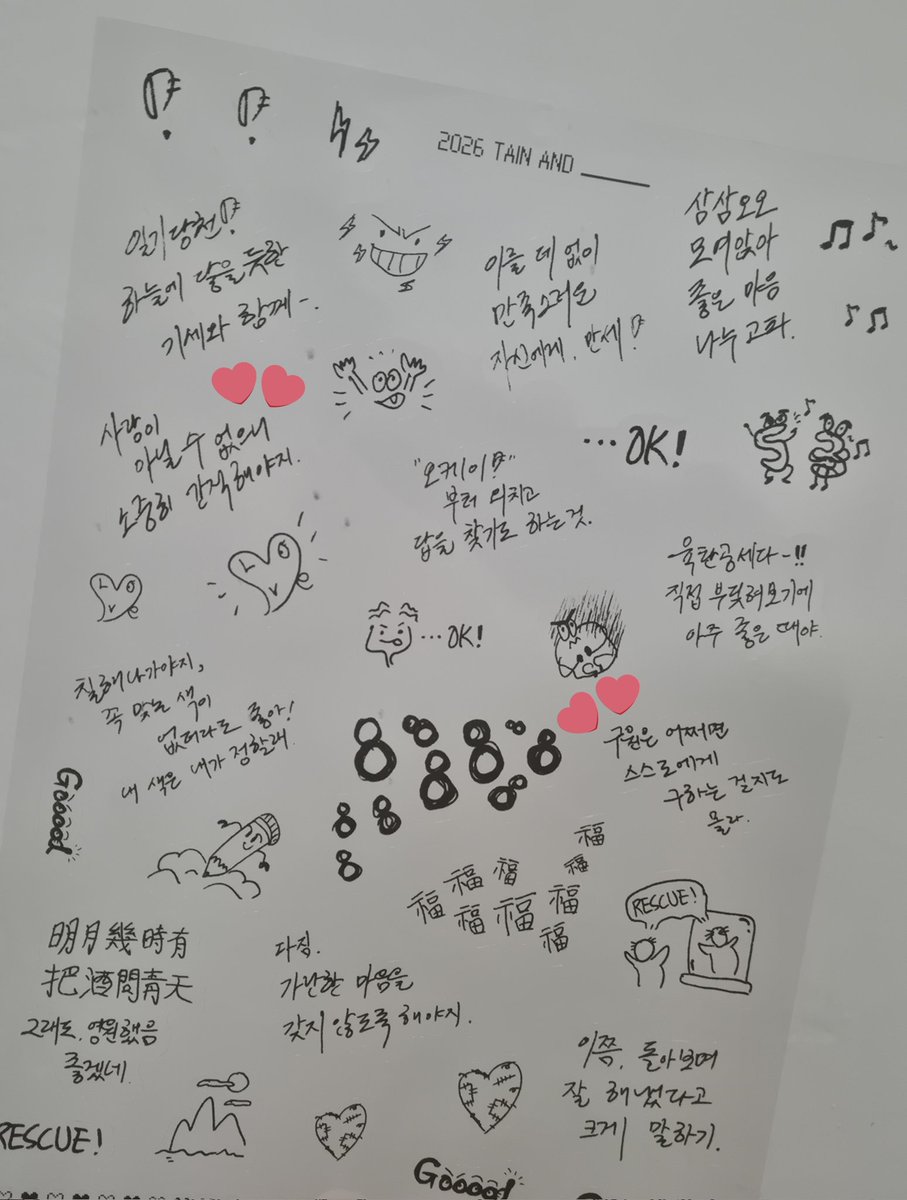 2026 TAIN AND
일기당천!
하늘에 닿을 듯한
기세와 함께~.
이를 데 없이
만족스러운
자신에게, 만세!
삼삼오오
모여앉아
좋은 마음
나누고파.
사랑이
아닐 수 없으니
소중히 간직해야지.
LOVe
LOVe
"오케이!"
부터 외치고
답을 찾기도 하는 것.
...OK!
...OK!
-육탄공세다-!!
직접 부딪혀보기에
아주 좋은 때야.
칠해나가야지,
꼭 맞는 색이
없더라도 좋아!
내 색은 내가 정할래.
Gooood
8 8 8 8 8 8 8 8 8 8
구원은 어쩌면
스스로에게
구하는 걸지도
몰라.
福 福 福 福 福 福 福 福 福
RESCUE!
明月幾時有
把酒問青天
그래도, 영원했음
좋겠네.
다짐.
가난한 마음을
갖지 않도록 해야지.
이쯤, 돌아보며
잘 해냈다고
크게 말하기.
RESCUE!
Gooood